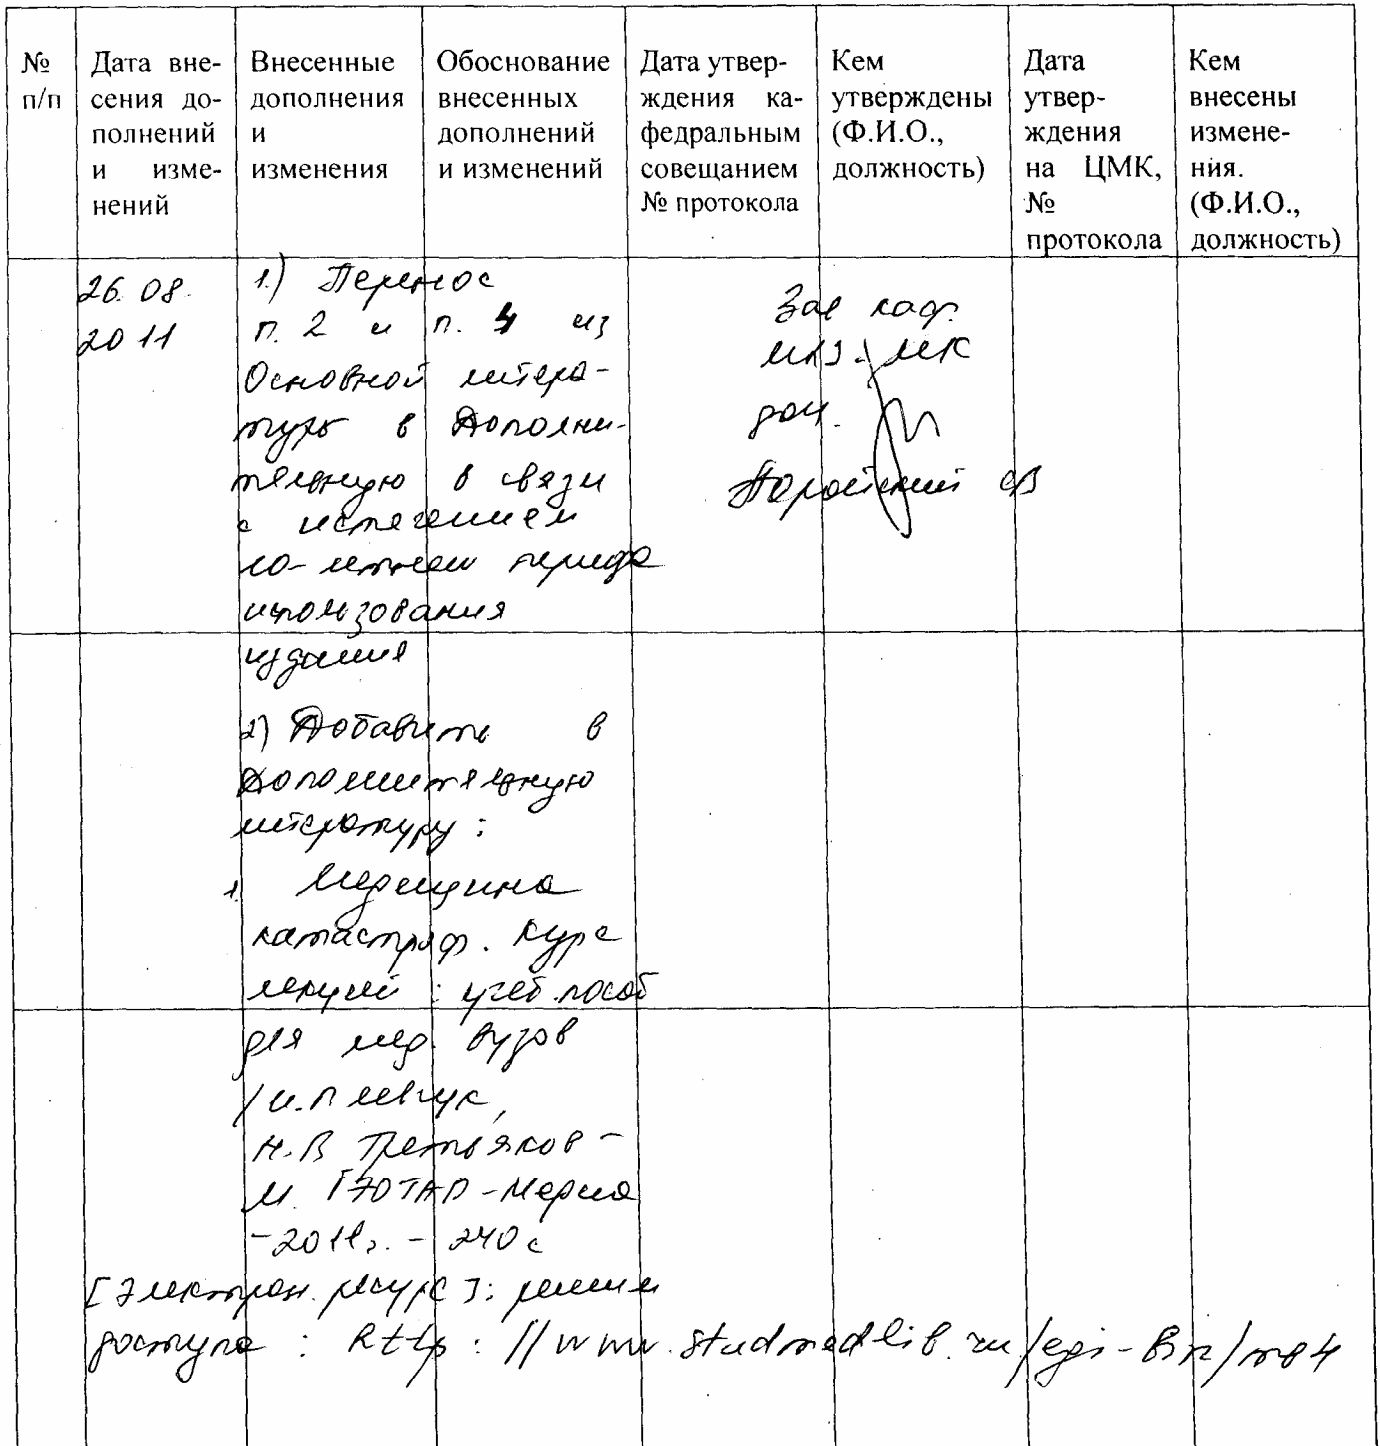 № п/п
Дата вне-
сения до-
полнений
и изме-
нений
Внесенные
дополнения
и
изменения
Обоснование
внесенных
дополнений
и изменений
Дата утвер-
ждения ка-
федральным
совещанием
№ протокола
Кем
утверждены
(Ф.И.О.,
должность)
Дата
утвер-
ждения
на ЦМК,
№
протокола
Кем
внесены
измене-
ния.
(Ф.И.О.,
должность)
26.08.
2011
1.) Перенос
п. 2 и п. 4 из
Основной литера-
туры в Дополни-
тельную в связи
с истечением
10-летнем периода
использования
издания
2) Добавить в
Дополнительную
литературу:
1. Медицина
катастроф. Курс
лекций : учеб. пособ
для мед. вузов
/ И.П. Левчук,
Н.В Третьяков –
М. ГЭОТАР-Медиа
– 2011г. – 240 с
[Электрон. ресурс]: режим
доступа : http://www.studmedlib.ru/cgi-bin/mb4
Зав каф.
доц.
Поройский СВ